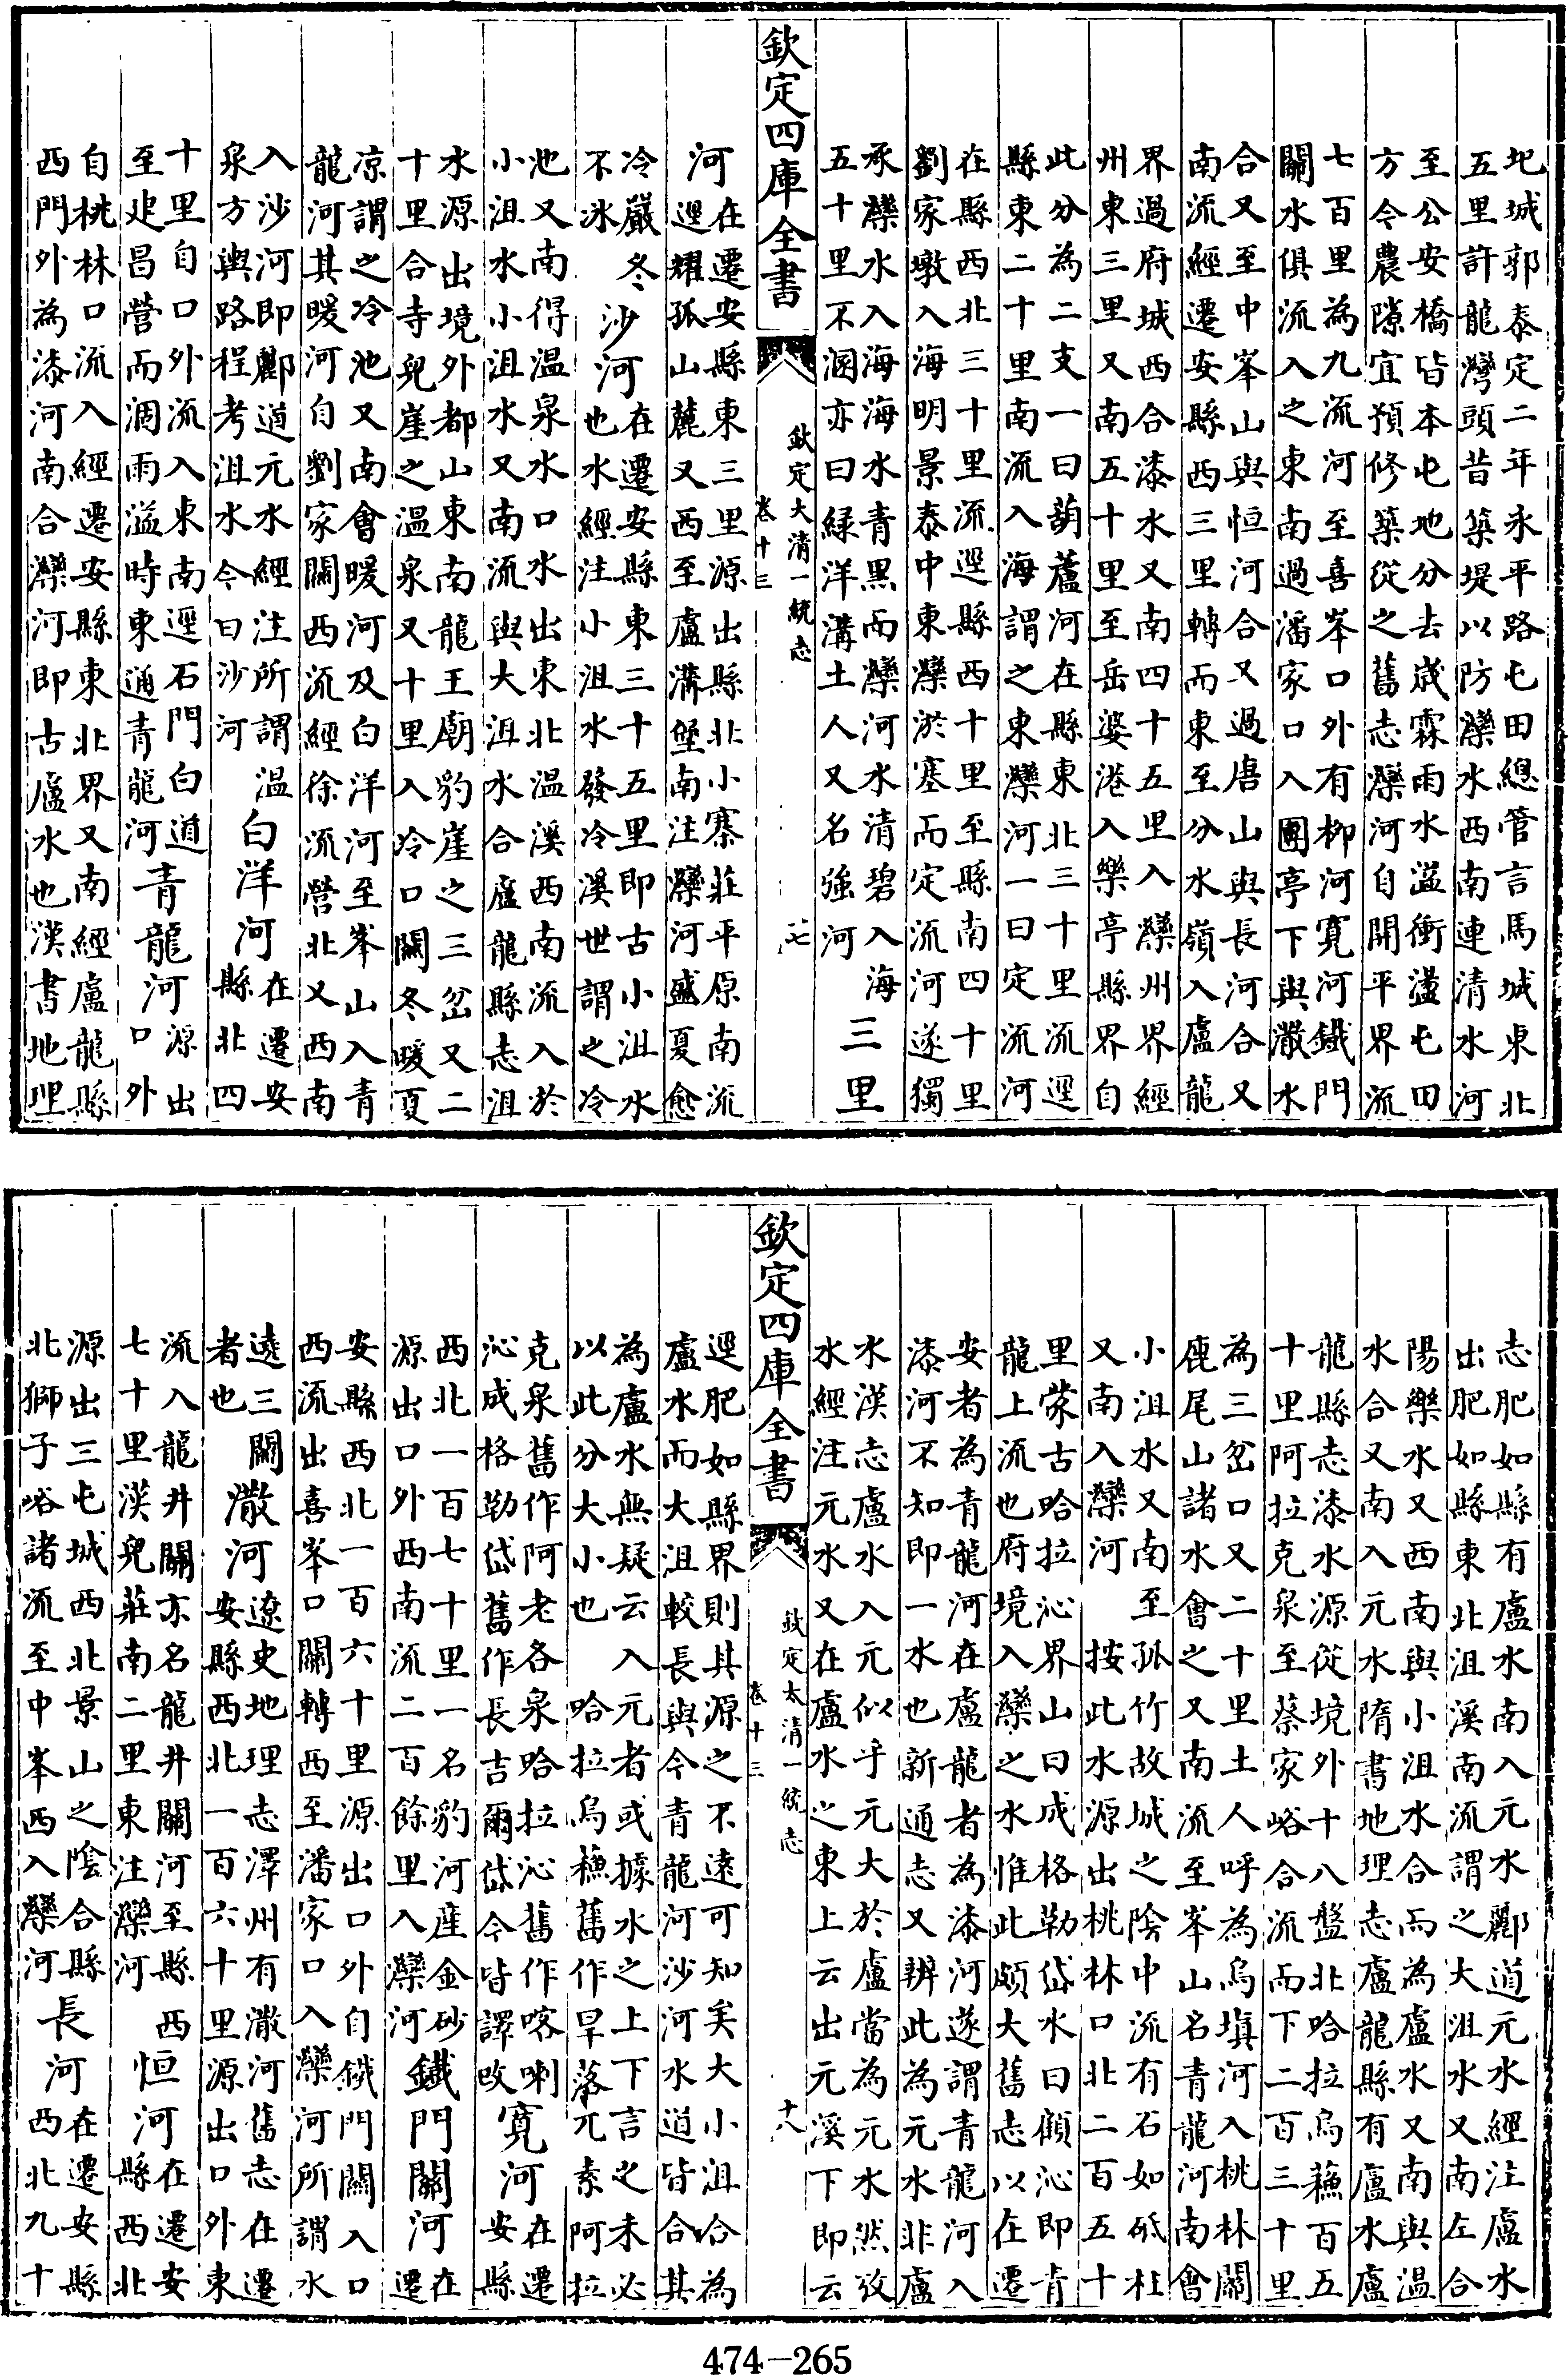 圯城郭泰定二年永平路屯田總管言馬城東北
五里許龍灣頭昔築堤以防灤水西南連清水河
至公安橋皆本屯地分去歲霖雨水溢衝盪屯田
方令農隙宜預修築從之舊志灤河自開平界流
七百里為九流河至喜峯口外有柳河寛河鐵門
關水俱流入之東南過潘家口入團亭下與潵水
合又至中峯山與恒河合又過唐山與長河合又
南流經遷安縣西三里轉而東至分水嶺入盧龍
界過府城西合漆水又南四十五里入灤州界經
州東三里又南五十里至岳婆港入樂亭縣界自
此分為二支一曰葫蘆河在縣東北三十里流逕
縣東二十里南流入海謂之東灤河一曰定流河
在縣西北三十里流逕縣西十里至縣南四十里
劉家墩入海明景泰中東灤淤塞而定流河遂獨
承灤水入海海水青黑而灤河水清碧入海
五十里不溷亦曰緑洋溝土人又名強河
三里
欽定四庫全書
欽定大清一統志
卷十三
十七
河
在遷安縣東三里源出縣北小寨莊平原南流
逕耀孤山麓又西至盧溝堡南注灤河盛夏愈
冷嚴冬
不冰
沙河
在遷安縣東三十五里即古小沮水
也水經注小沮水發冷溪世謂之冷
池又南得溫泉水口水出東北溫溪西南流入於
小沮水小沮水又南流與大沮水合盧龍縣志沮
水源出境外都山東南龍王廟豹崖之三岔又二
十里合寺兒崖之溫泉又十里入冷口關冬暖夏
凉謂之冷池又南會暖河及白洋河至峯山入青
龍河其暖河自劉家關西流經徐流營北又西南
入沙河即酈道元水經注所謂溫
泉方輿路程考沮水今曰沙河
白洋河
在遷安
縣北四
十里自口外流入東南逕石門白道
至建昌營而涸雨溢時東通青龍河
青龍河
源出
口外
自桃林口流入經遷安縣東北界又南經盧龍縣
西門外為漆河南合灤河即古盧水也漢書地理
志肥如縣有盧水南入元水酈道元水經注盧水
出肥如縣東北沮溪南流謂之大沮水又南左合
陽樂水又西南與小沮水合而為盧水又南與溫
水合又南入元水隋書地理志盧龍縣有盧水盧
龍縣志漆水源從境外十八盤北哈拉烏蘓百五
十里阿拉克泉至蔡家峪合流而下二百三十里
為三岔口又二十里土人呼為烏塡河入桃林關
鹿尾山諸水會之又南流至峯山名青龍河南會
小沮水又南至孤竹故城之陰中流有石如砥柱
又南入灤河 按此水源出桃林口北二百五十
里蒙古哈拉沁界山曰成格勒岱水曰傾沁即青
龍上流也府境入灤之水惟此頗大舊志以在遷
安者為青龍河在盧龍者為漆河遂謂青龍河入
漆河不知即一水也新通志又辨此為元水非盧
水漢志盧水入元似乎元大於盧當為元水然攷
水經注元水又在盧水之東上云出元溪下即云
欽定四庫全書
欽定大清一統志
卷十三
十八
逕肥如縣界則其源之不遠可知矣大小沮合為
盧水而大沮較長與今青龍河沙河水道皆合其
為盧水無疑云入元者或據水之上下言之未必
以此分大小也 哈拉烏蘓舊作旱落兀素阿拉
克泉舊作阿老各泉哈拉沁舊作喀喇
沁成格勒岱舊作長吉爾岱今皆譯改
寛河
在遷
安縣
西北一百七十里一名豹河産金砂
源出口外西南流二百餘里入灤河
鐵門關河
在
遷
安縣西北一百六十里源出口外自鐵門關入口
西流出喜峯口關轉西至潘家口入灤河所謂水
遶三關
者也
潵河
遼史地理志澤州有潵河舊志在遷
安縣西北一百六十里源出口外東
流入龍井關亦名龍井關河至縣西
七十里漢兒莊南二里東注灤河
恒河
在遷安
縣西北
源出三屯城西北景山之陰合縣
北獅子峪諸流至中峯西入灤河
長河
在遷安縣
西北九十
474-265